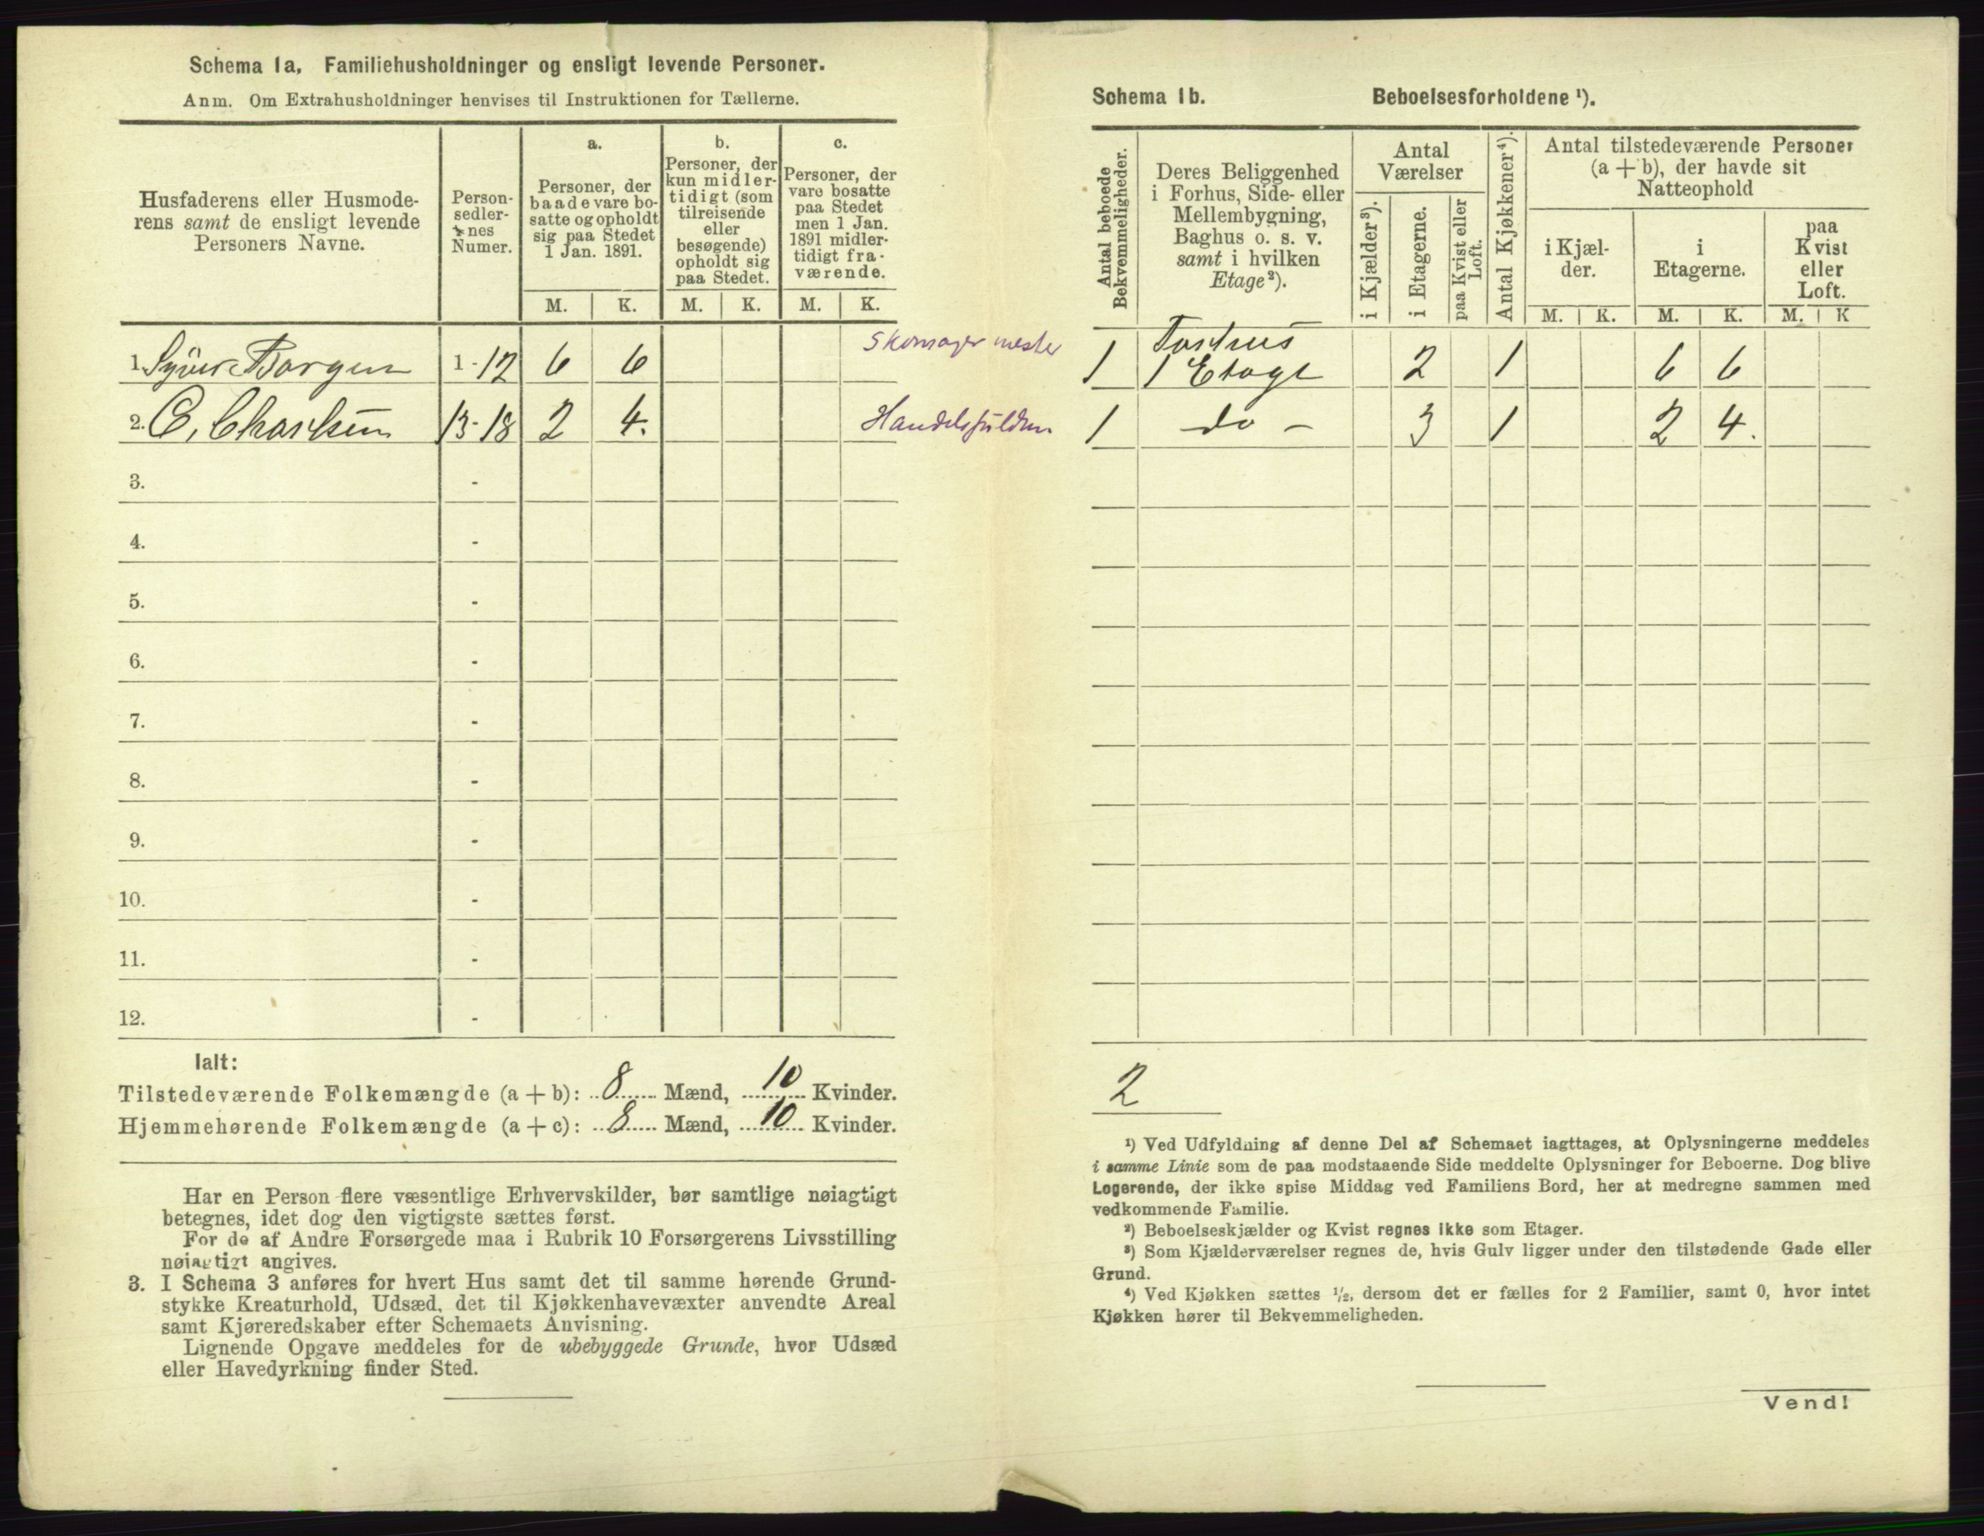 Schema 1a. Familiehusholdninger og ensligt levende Personer.
Anm. Om Extrahusholdninger henvises til Instruktionen for Tællerne.
Husfaderens eller Husmode-
rens samt de ensligt levende
Personers Navne.
Person-
sedler-
nes
Numer.
a.
Personer, der
baade vare bo-
satte og opholdt
sig paa Stedet
1 Jan. 1891.
b.
Personer, der
kun midler-
tidigt (som
tilreisende
eller
besøgende)
opholdt sig
paa Stedet.
c.
Personer, der
vare bosatte
paa Stedet
men 1 Jan.
1891 midler-
tidigt fra-
værende.
M. K. M. K. M. K.
1. Syver Borgen 1-12 6 6 Skomagermester
2. C. Charlsen 13-18 2 4. 
3. -
4. -
5. -
6. -
7. -
8. -
9. -
10. -
11. -
12. -
Ialt:
Tilstedeværende Folkemængde (a + b): 8 Mænd, 10 Kvinder.
Hjemmehørende Folkemængde (a + c): 8 Mænd, 10 Kvinder.
Har en Person flere væsentlige Erhvervskilder, bør samtlige nøiagtigt
betegnes, idet dog den vigtigste sættes først.
For de af Andre Forsørgede maa i Rubrik 10 Forsørgerens Livsstilling
nøiagtigt angives.
3. I Schema 3 anføres for hvert Hus samt det til samme hørende Grund-
stykke Kreaturhold, Udsæd, det til Kjøkkenhavevæxter anvendte Areal
samt Kjøreredskaber efter Schemaets Anvisning.
Lignende Opgave meddeles for de ubebyggede Grunde, hvor Udsæd
eller Havedyrkning finder Sted.
Schema 1b. Beboelsesforholdene ¹).
Antal beboede
Bekvemmeligheder.
Deres Beliggenhed
i Forhus, Side- eller
Mellembygning,
Baghus o. s. v.
samt i hvilken
Etage²).
Antal
Værelser
i Kjælder³).
i Etagerne.
paa Kvist eller
Loft.
Antal Kjøkkener⁴).
Antal tilstedeværende Personer
(a + b), der havde sit
Natteophold
i Kjæl-
der.
i
Etagerne.
paa
Kvist
eller
Loft.
M. K. M. K. M. K
1 Forhus
1 Etage 2 1 6 6
1 do - 3 1 2 4.
2
¹) Ved Udfyldning af denne Del af Schemaet iagttages, at Oplysningerne meddeles
i samme Linie som de paa modstaaende Side meddelte Oplysninger for Beboerne. Dog blive
Logerende, der ikke spise Middag ved Familiens Bord, her at medregne sammen med
vedkommende Familie.
²) Beboelseskjælder og Kvist regnes ikke som Etager.
³) Som Kjælderværelser regnes de, hvis Gulv ligger under den tilstødende Gade eller
Grund.
⁴) Ved Kjøkken sættes ½, dersom det er fælles for 2 Familier, samt 0, hvor intet
Kjøkken hører til Bekvemmeligheden.
Vend!